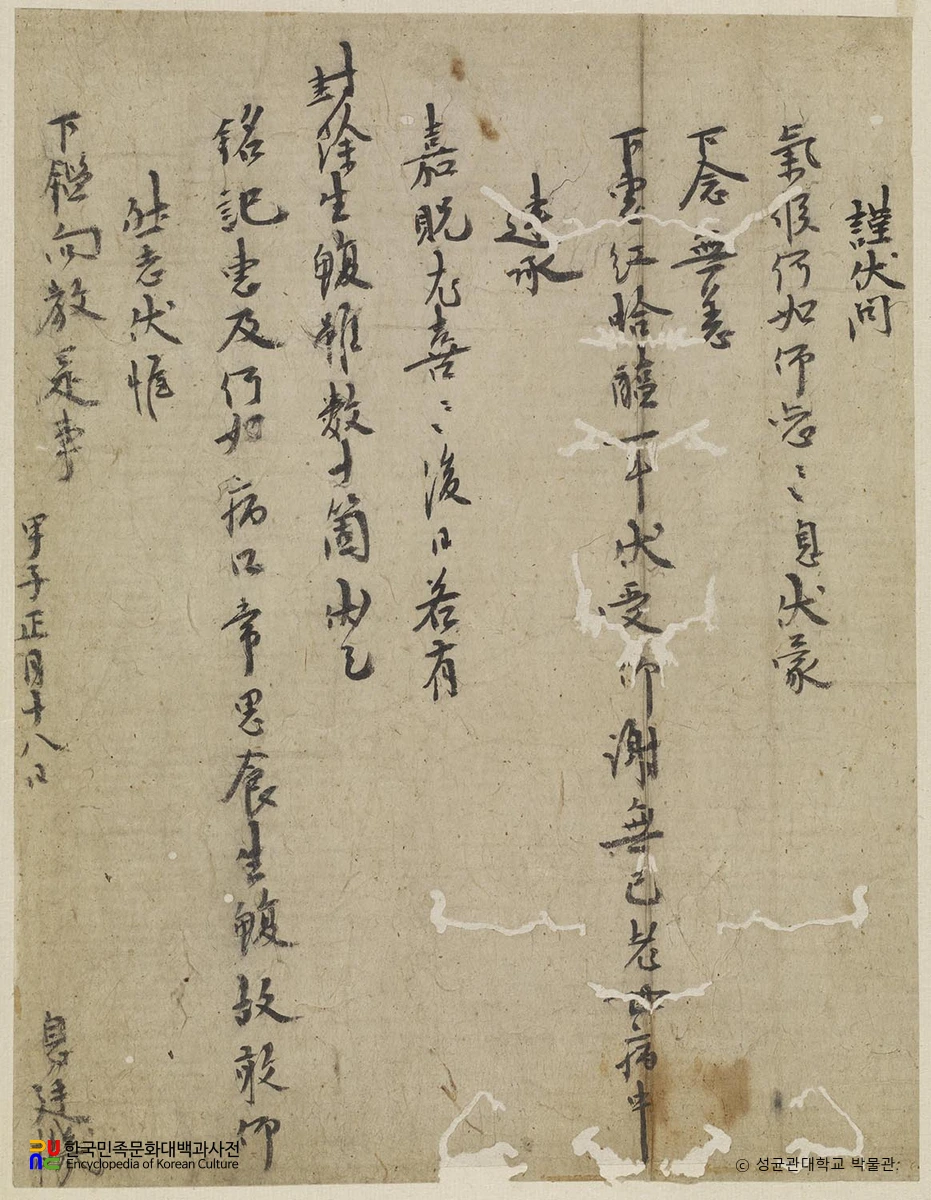 謹伏問
氣候何如仰慮〻〻息伏蒙
下念無恙
下惠紅蛤醢一斗伏受仰謝無已 病中
遠承
嘉貺尤喜〻後日若有
封餘生鰒雖數十箇
銘記惠及何如病口常思食生鰒故敢仰
伏惟
下鑑向教是事
甲子正月十八日
息廷
한국민족문화대백과사전
Encyclopedia of Korean Culture
© 성균관대학교 박물관